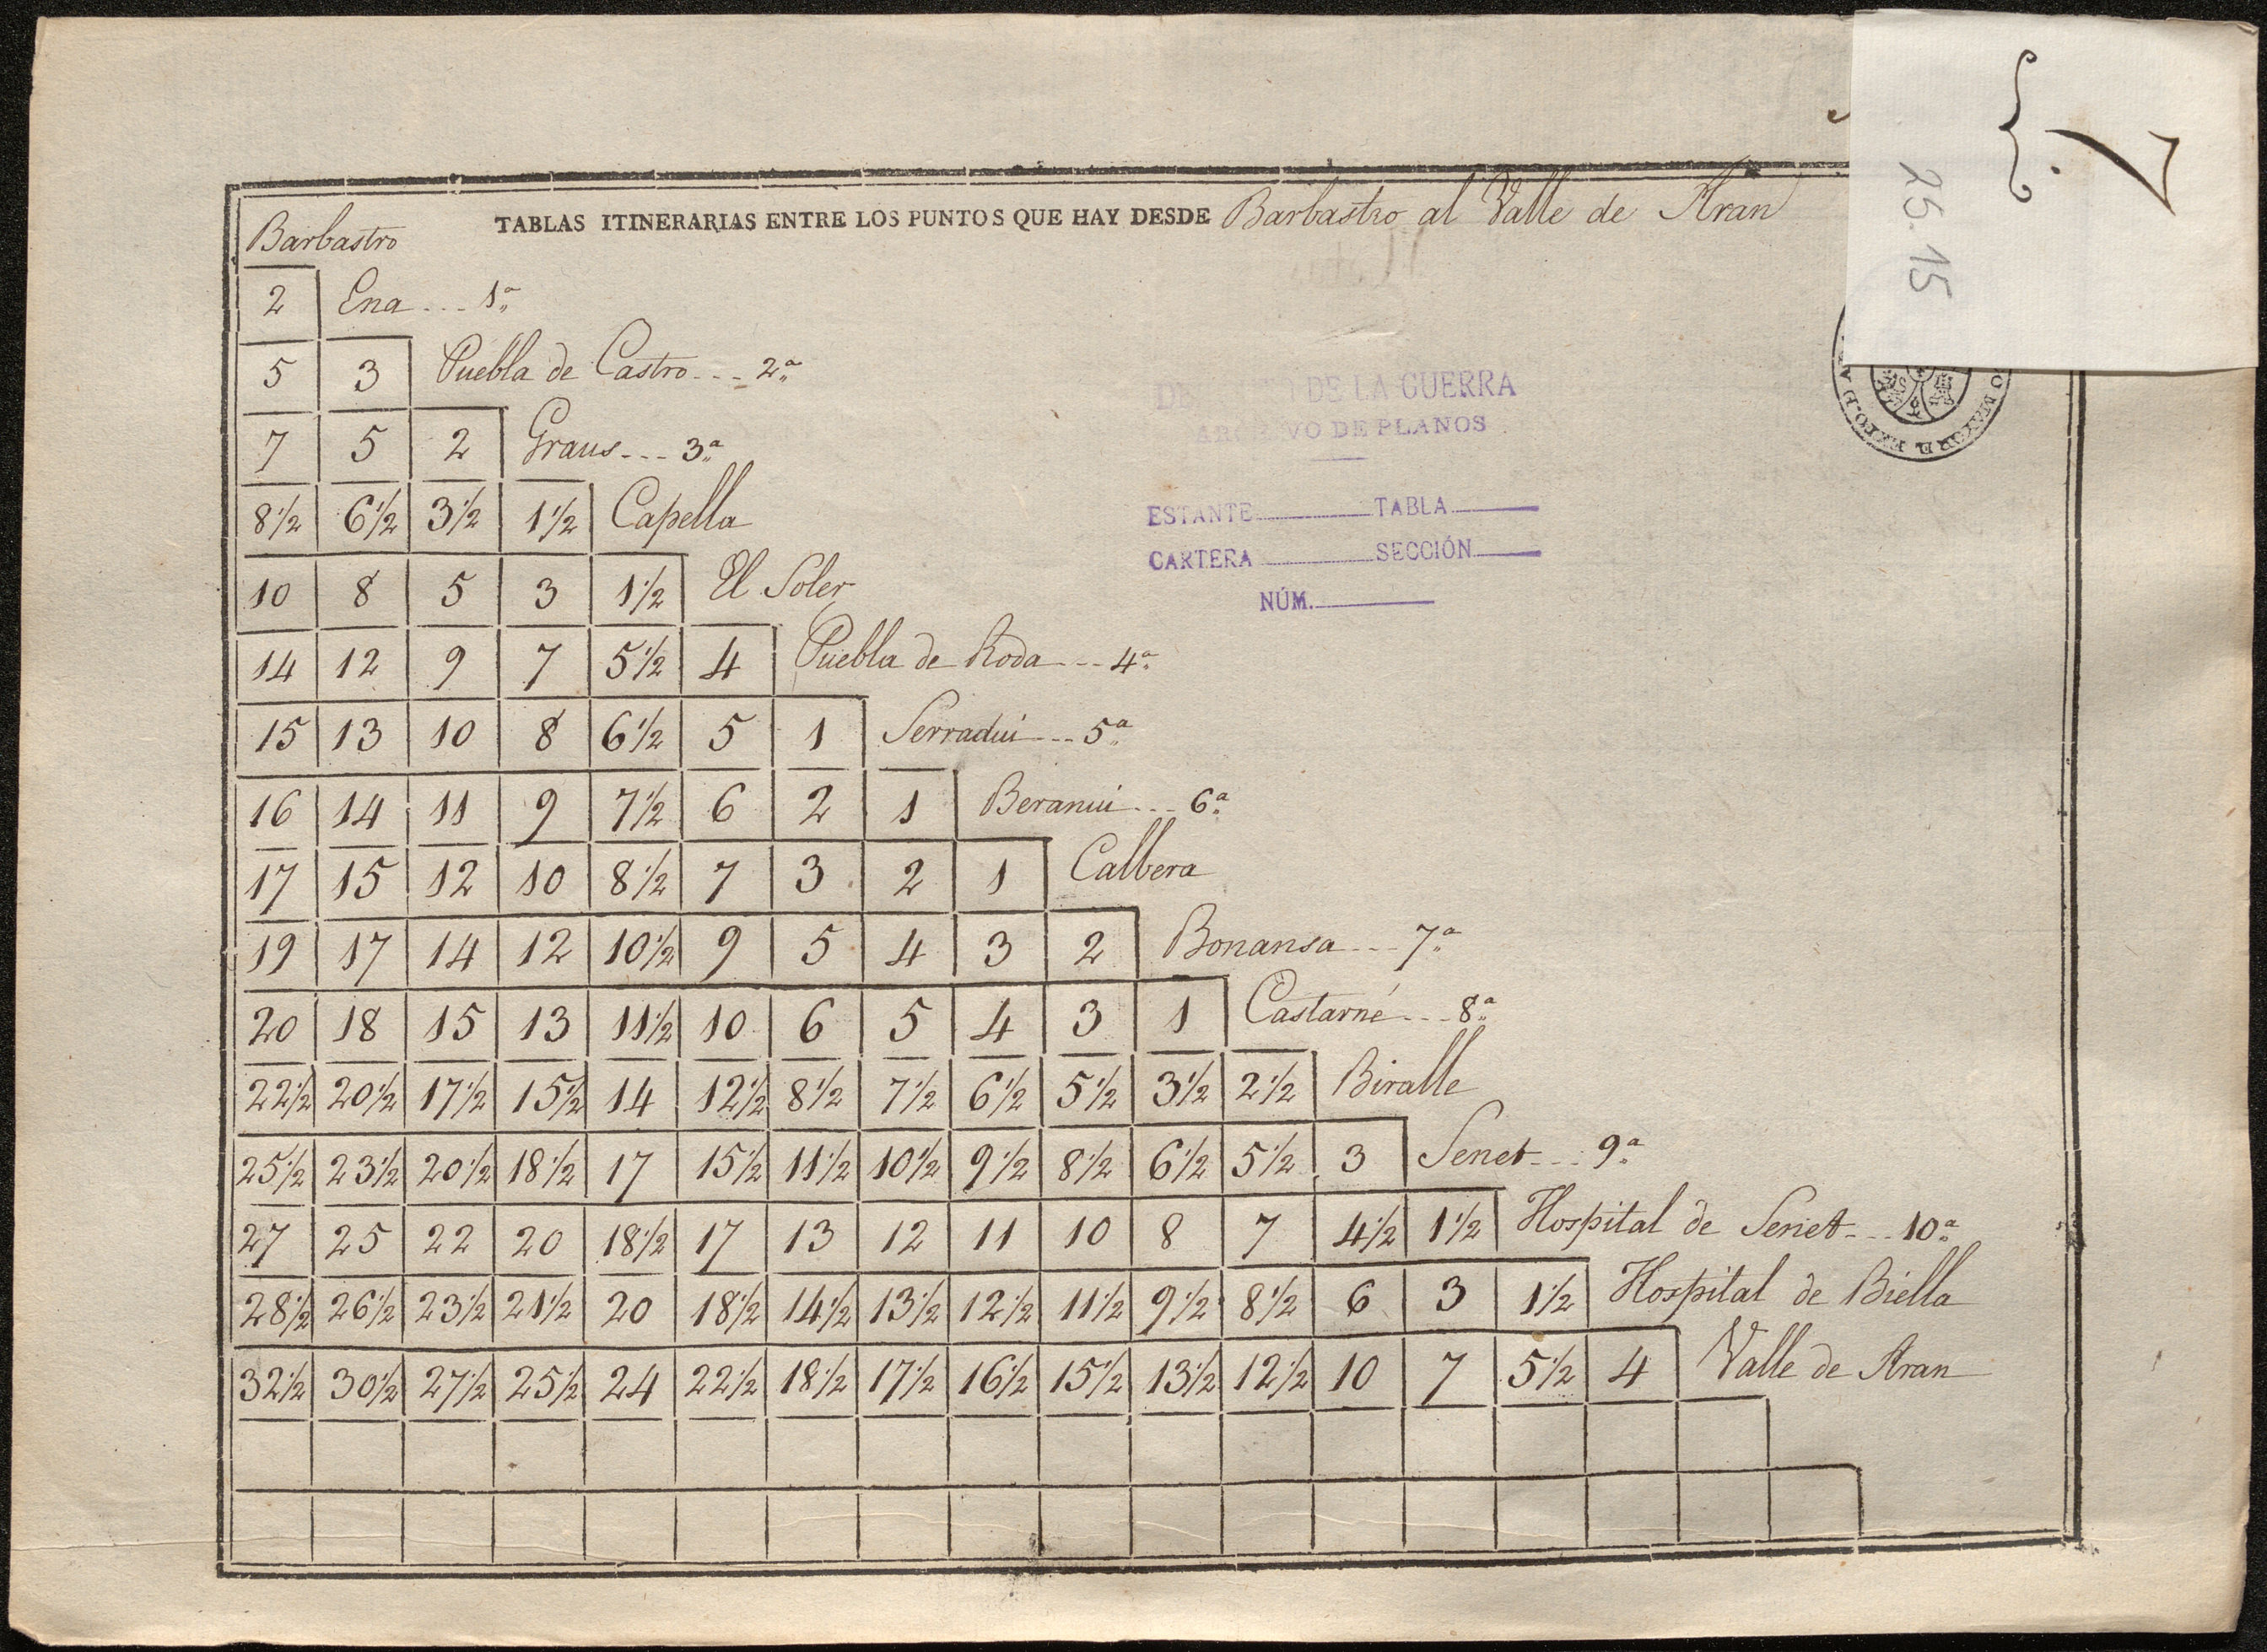 TABLAS ITINERARIAS ENTRE LOS PUNTOS QUE HAY DESDE Barbastro al Valle de Aran
Barbastro
2 Ena 1ª
5 3 Puebla de Castro 2ª
7 5 2 Graus 3ª
8½ 6½ 3½ 1½ Capella
10 8 5 3 1½ El Soler
14 12 9 7 5½ 4 Puebla de Roda 4ª
15 13 10 8 6½ 5 1 Serradui 5ª
16 14 11 9 7½ 6 2 1 Beranui 6ª
17 15 12 10 8½ 7 3 2 1 Calbera
19 17 14 12 10½ 9 5 4 3 2 Bonansa 7ª
20 18 15 13 11½ 10 6 5 4 3 1 Castarné 8ª
22½ 20½ 17½ 15½ 14 12½ 8½ 7½ 6½ 5½ 3½ 2½ Biralle
25½ 23½ 20½ 18½ 17 15½ 11½ 10½ 9½ 8½ 6½ 5½ 3 Senet 9ª
27 25 22 20 18½ 17 13 12 11 10 8 7 4½ 1½ Hospital de Senet 10ª
28½ 26½ 23½ 21½ 20 18½ 14½ 13½ 12½ 11½ 9½ 8½ 6 3 1½ Hospital de Biella
32½ 30½ 27½ 25½ 24 22½ 18½ 17½ 16½ 15½ 13½ 12½ 10 7 5½ 4 Valle de Aran
DE LA GUERRA
DE PLANOS
ESTANTE TABLA
CARTERA SECCIÓN
NÚM.
7
25.15